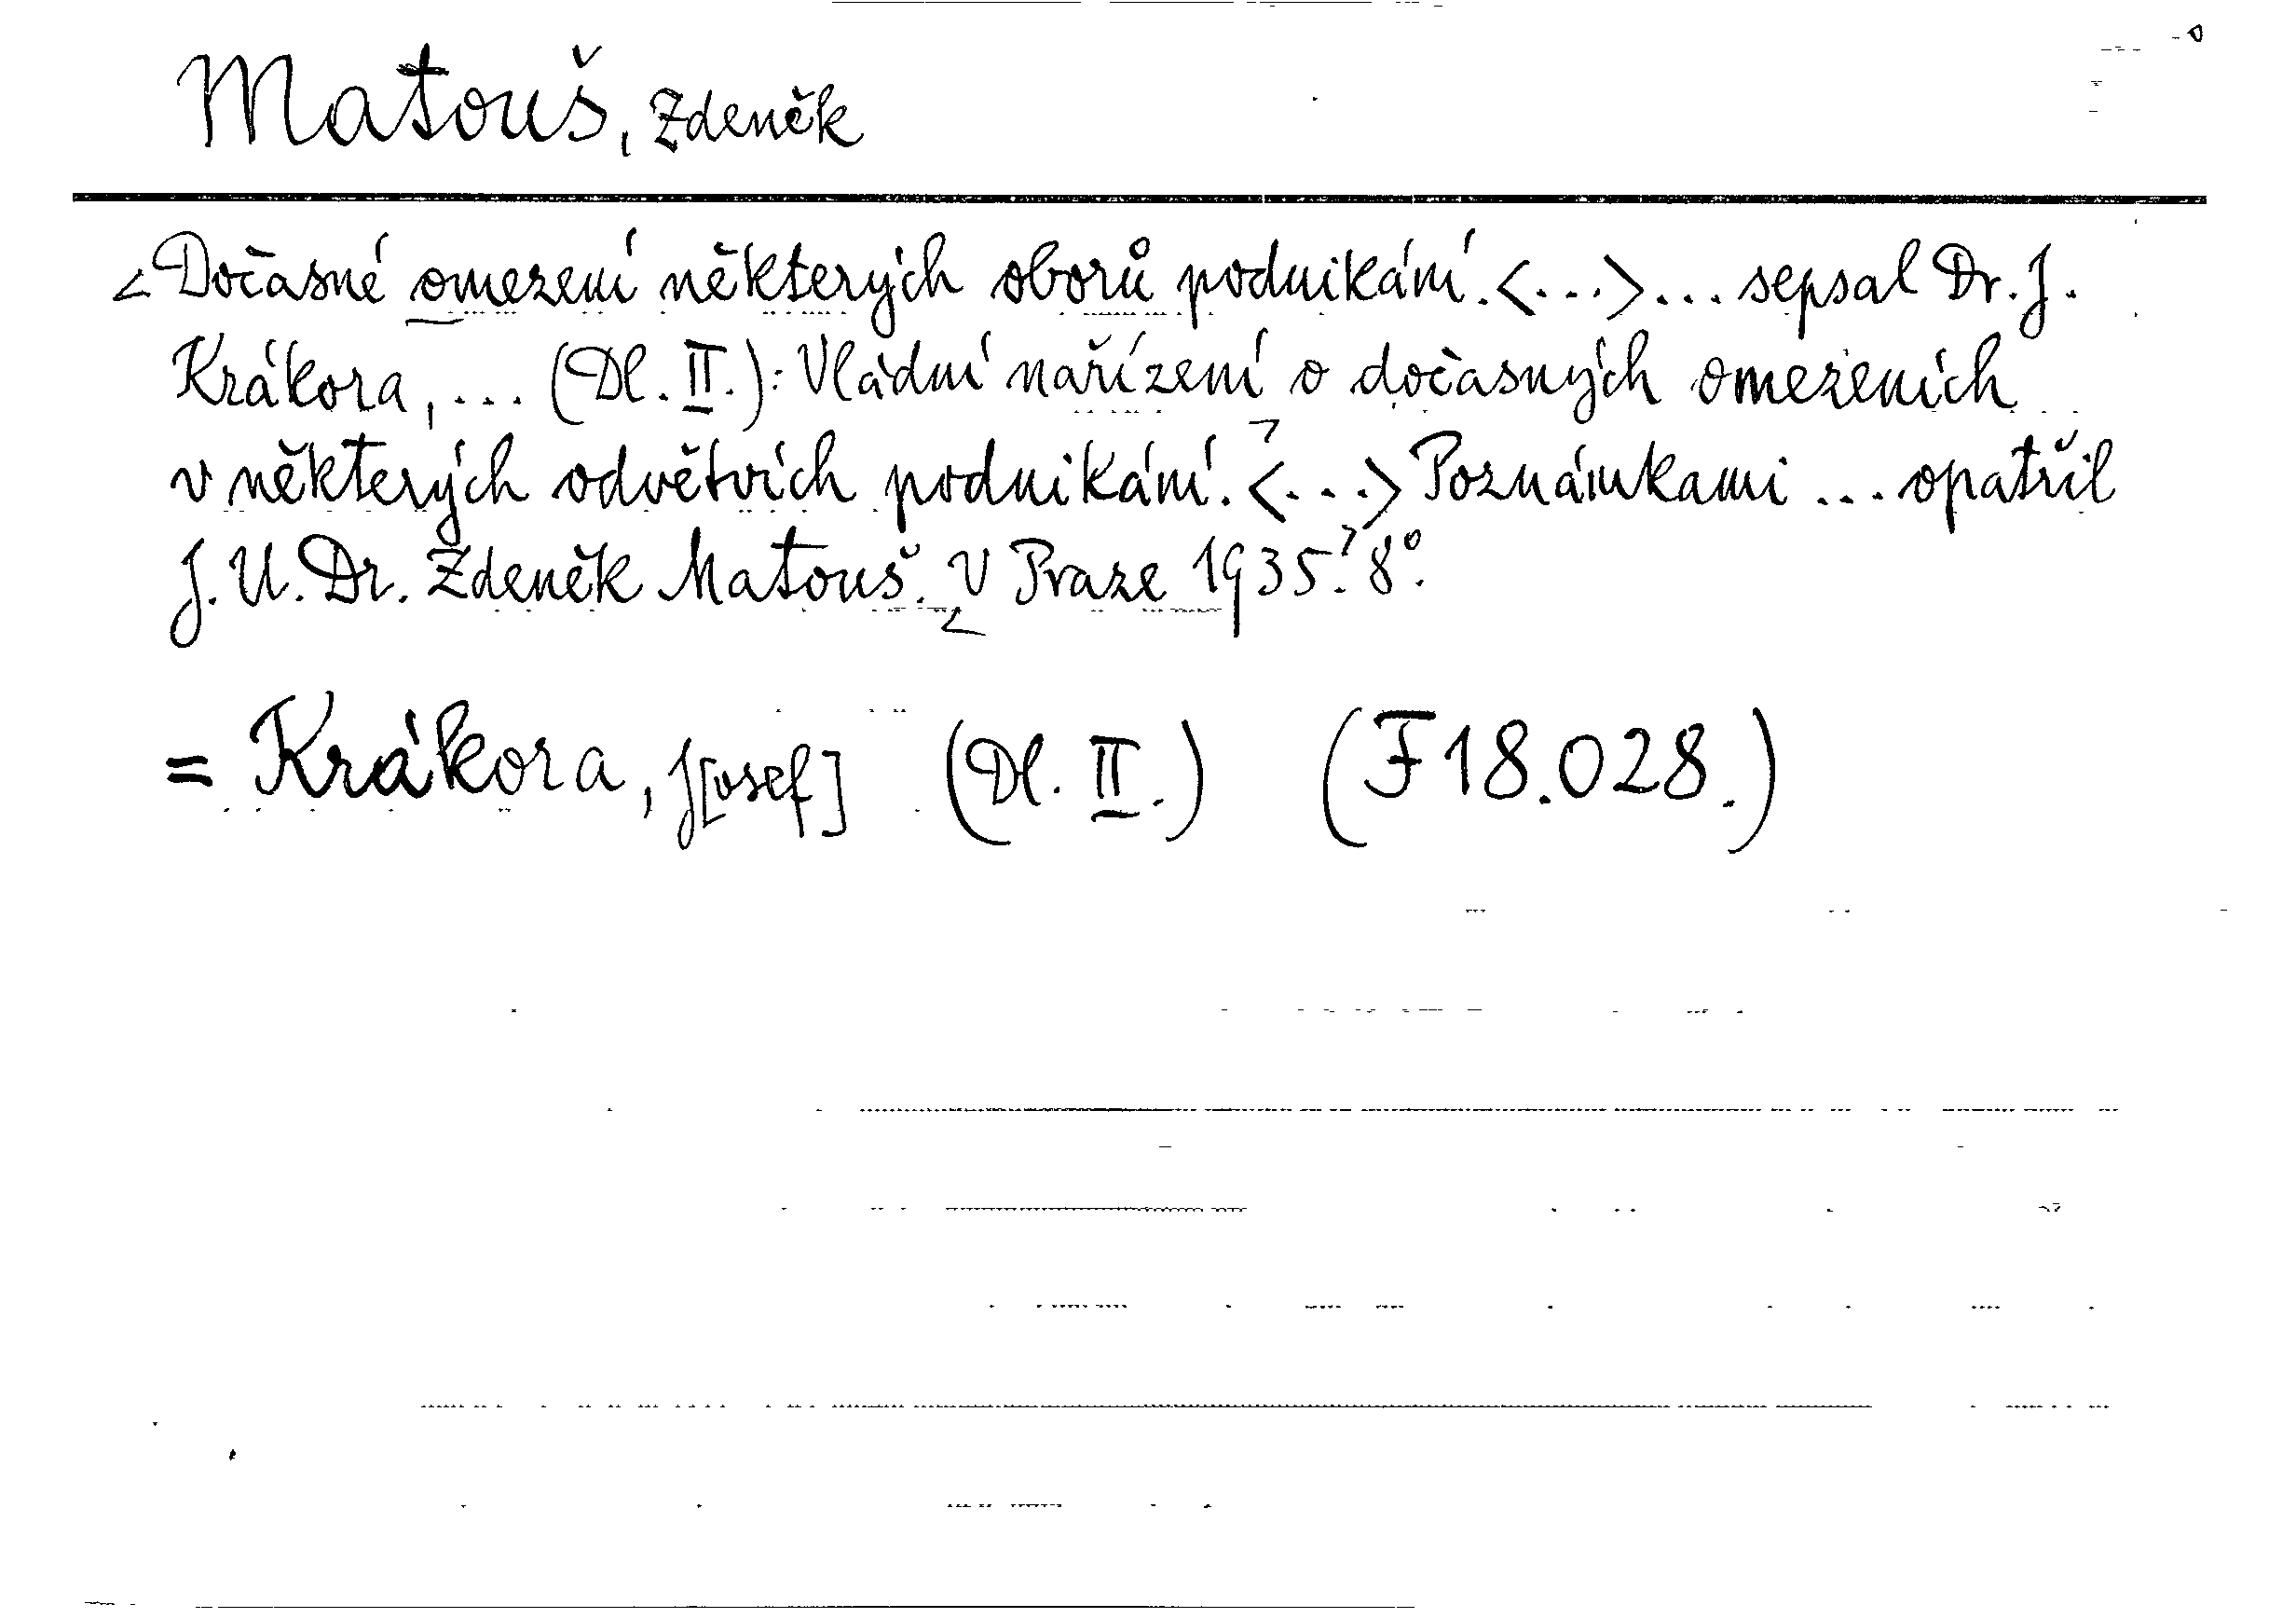 Matouš, Zdeněk
<Dočasné omezení některých oborů podnikání.<...>... sepsal Dr. J.
Krákora, ... (Dl. II.): Vládní nařízení o dočasných omezeních
v některých odvětvích podnikání.<...> Poznámkami ... opatřil
J. U. Dr. Zdeněk Matouš. V Praze 1935. 8°.
= Krákora, J[osef] (Dl. II.) (F 18.028.)